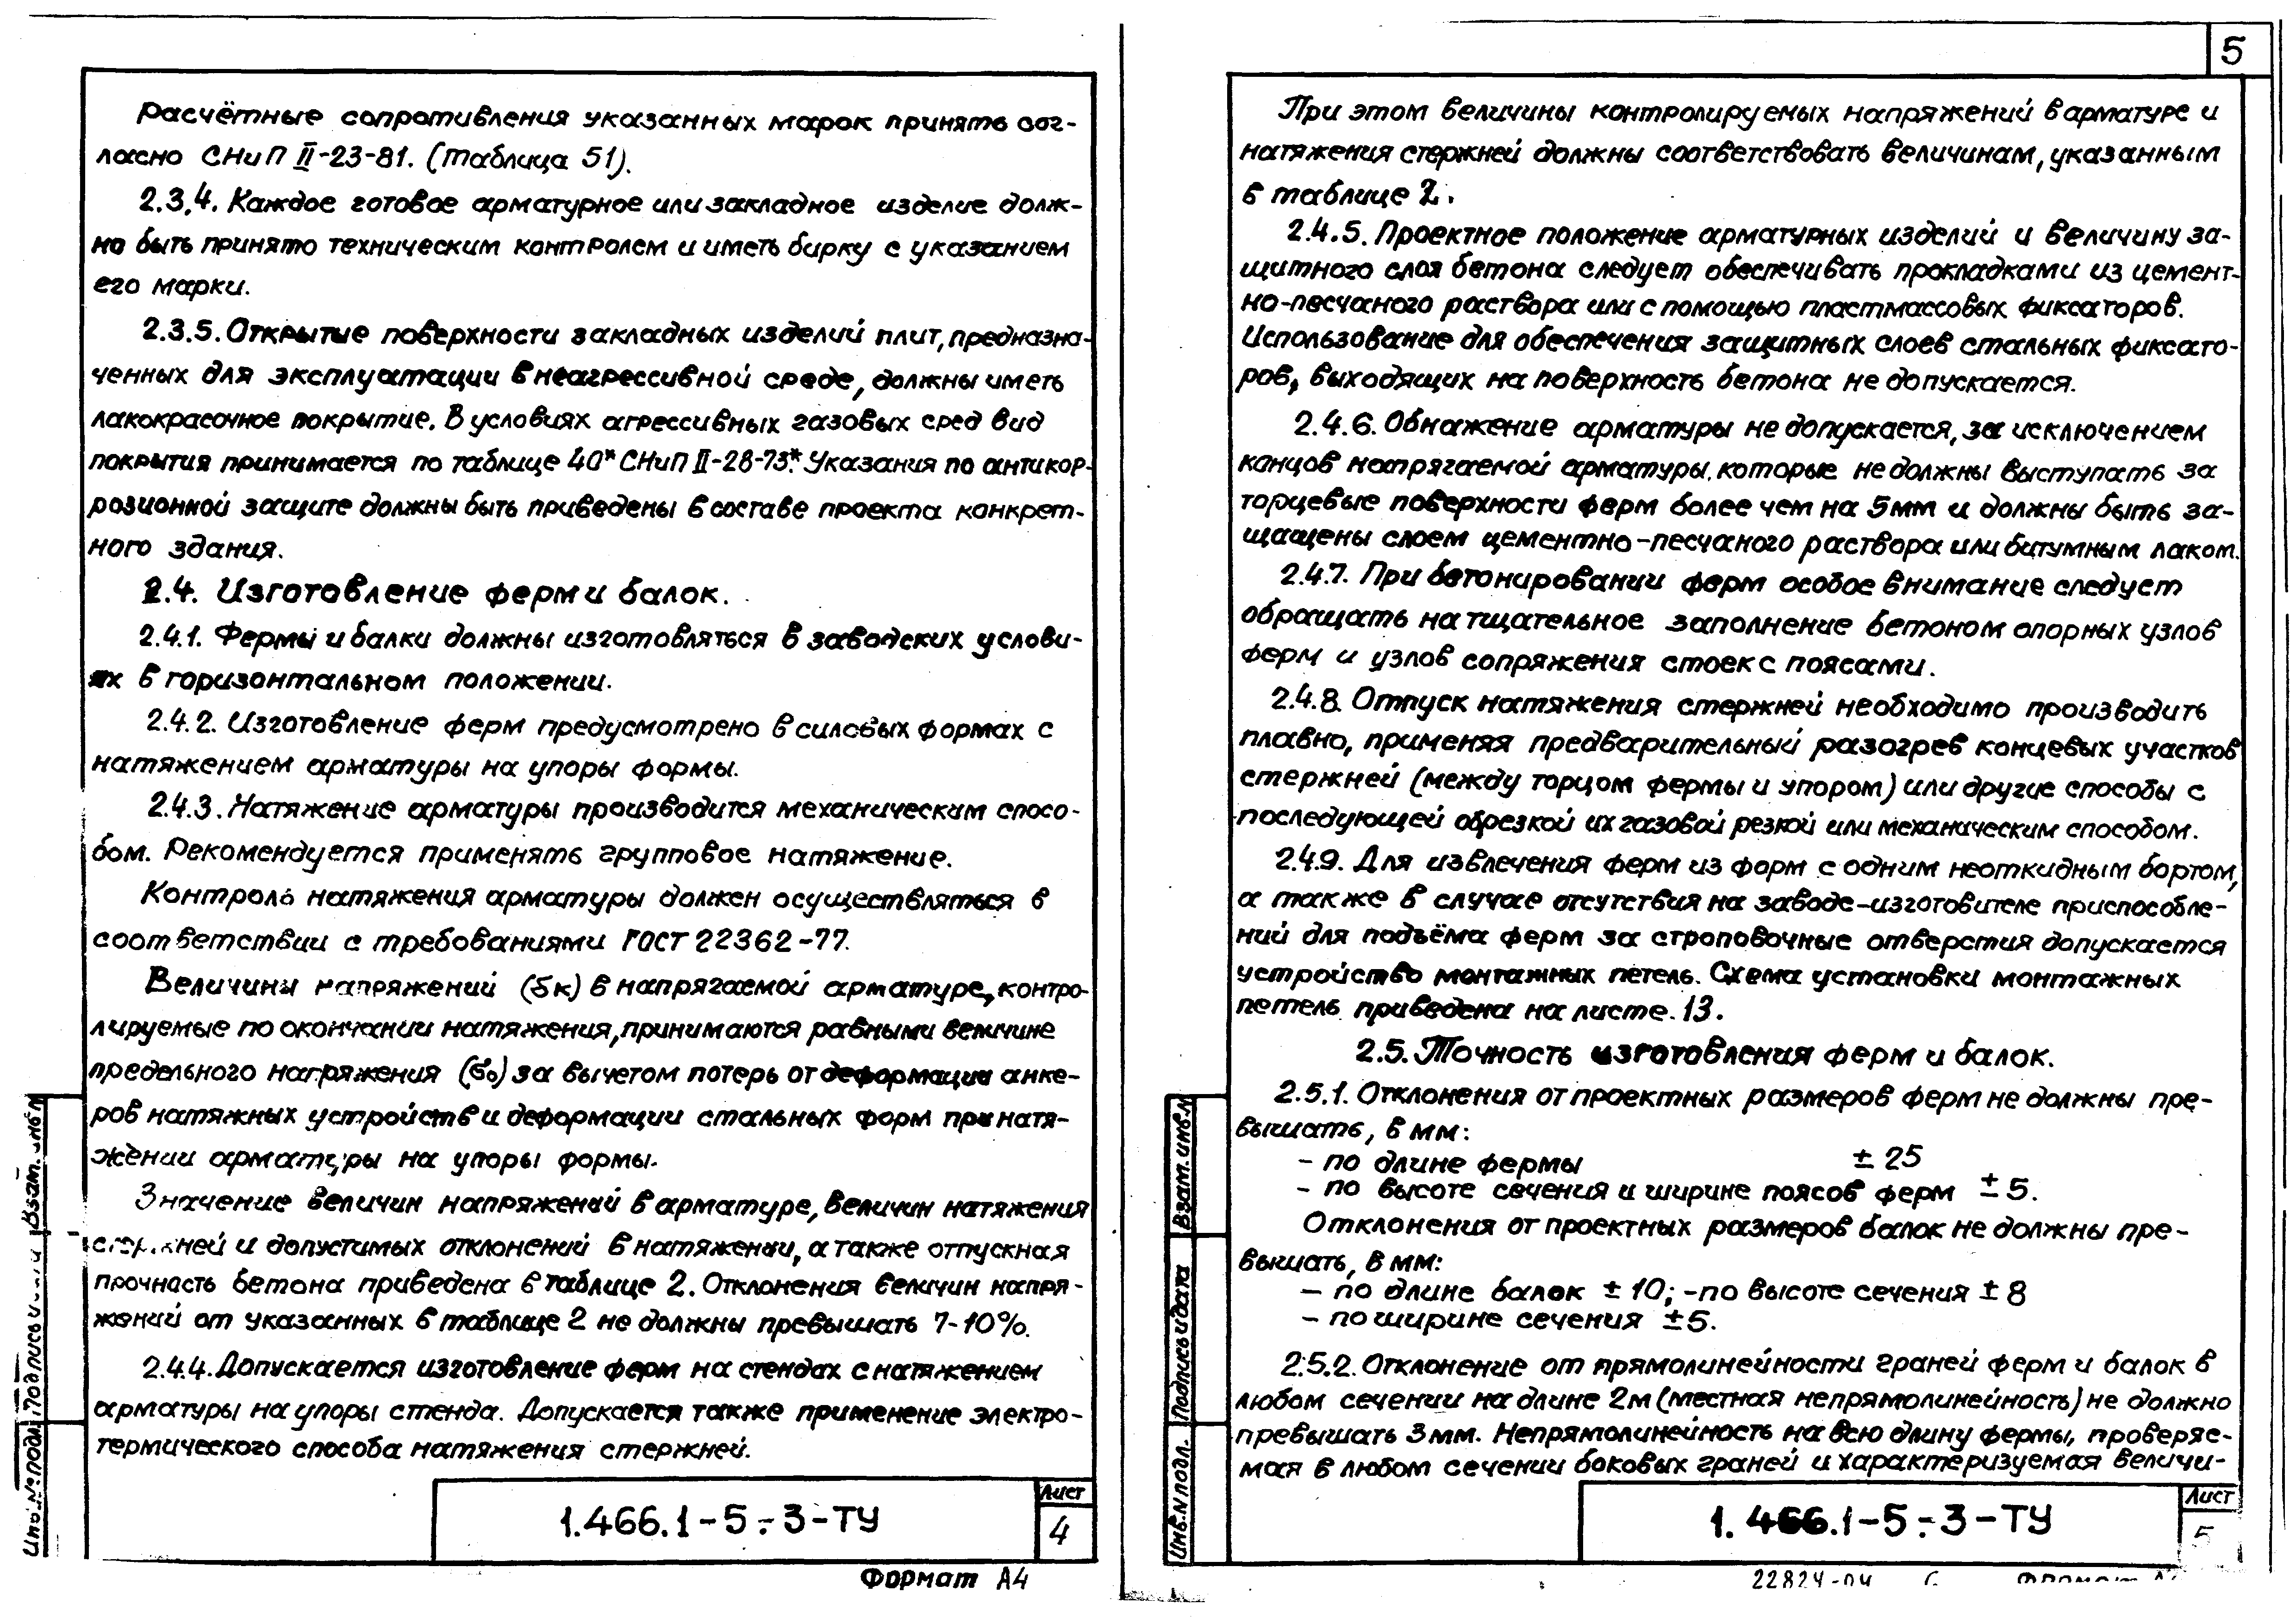 Расчётные сопротивления указанных марок принять сог-
ласно СНиП II-23-81. (таблица 51).
2.3.4. Каждое готовое арматурное или закладное изделие долж-
но быть принято техническим контролем и иметь бирку с указанием
его марки.
2.3.5. Открытые поверхности закладных изделий плит, предназна-
ченных для эксплуатации в неагрессивной среде, должны иметь
лакокрасочное покрытие. В условиях агрессивных газовых сред вид
покрытия принимается по таблице 40* СНиП II-28-73*. Указания по антикор-
розионной защите должны быть приведены в составе проекта конкрет-
ного здания.
2.4. Изготовление ферм и балок.
2.4.1. Фермы и балки должны изготовляться в заводских услови-
ях в горизонтальном положении.
2.4.2. Изготовление ферм предусмотрено в силовых формах с
натяжением арматуры на упоры формы.
2.4.3. Натяжение арматуры производится механическим спосо-
бом. Рекомендуется применять групповое натяжение.
Контроль натяжения арматуры должен осуществляться в
соответствии с требованиями ГОСТ 22362-77.
Величины напряжений (бк) в напрягаемой арматуре, контро-
лируемые по окончании натяжения, принимаются равными величине
предельного напряжения (бо) за вычетом потерь от деформации анке-
ров натяжных устройств и деформации стальных форм при натя-
жении арматуры на упоры формы.
Значение величин напряжений в арматуре, величин натяжения
стержней и допустимых отклонений в натяжении, а также отпускная
прочность бетона приведена в таблице 2. Отклонения величин напря-
жений от указанных в таблице 2 не должны превышать 7-10%.
2.4.4. Допускается изготовление ферм на стендах с натяжением
арматуры на упоры стенда. Допускается также применение электро-
термического способа натяжения стержней.
1.466.1-5.-3-ТУ
Лист
4
Формат А4
Инв. № подл.
Подпись и
Взам. инв №
5
При этом величины контролируемых напряжений в арматуре и
натяжения стержней должны соответствовать величинам, указанным
в таблице 2.
2.4.5. Проектное положение арматурных изделий и величину за-
щитного слоя бетона следует обеспечивать прокладками из цемент-
но-песчаного раствора или с помощью пластмассовых фиксаторов.
Использование для обеспечения защитных слоев стальных фиксато-
ров, выходящих на поверхность бетона не допускается.
2.4.6. Обнажение арматуры не допускается, за исключением
концов напрягаемой арматуры, которые не должны выступать за
торцевые поверхности ферм более чем на 5мм и должны быть за-
щащены слоем цементно-песчаного раствора или битумным лаком.
2.4.7. При бетонировании ферм особое внимание следует
обращать на тщательное заполнение бетоном опорных узлов
ферм и узлов сопряжения стоек с поясами.
2.4.8. Отпуск натяжения стержней необходимо производить
плавно, применяя предварительный разогрев концевых участков
стержней (между торцом фермы и упором) или другие способы с
последующей обрезкой их газовой резкой или механическим способом.
2.4.9. Для извлечения ферм из форм с одним неоткидным бортом,
а также в случае отсутствия на заводе-изготовителе приспособле-
ний для подъёма ферм за строповочные отверстия допускается
устройство монтажных петель. Схема установки монтажных
петель приведена на листе 13.
2.5. Точность изготовления ферм и балок.
2.5.1. Отклонения от проектных размеров ферм не должны пре-
вышать, в мм:
- по длине фермы ± 25
- по высоте сечения и ширине поясов ферм ± 5.
Отклонения от проектных размеров балок не должны пре-
вышать, в мм:
- по длине балок ± 10; - по высоте сечения ± 8
- по ширине сечения ±5.
2.5.2. Отклонение от прямолинейности граней ферм и балок в
любом сечении на длине 2м (местная непрямолинейность) не должно
превышать 3мм. Непрямолинейность на всю длину фермы, проверяе-
мая в любом сечении боковых граней и характеризуемая величи-
1.466.1-5.-3-ТУ
Лист
5
22824-04 6
Инв. N подл.
Подпись и дата
Взам. инв. N